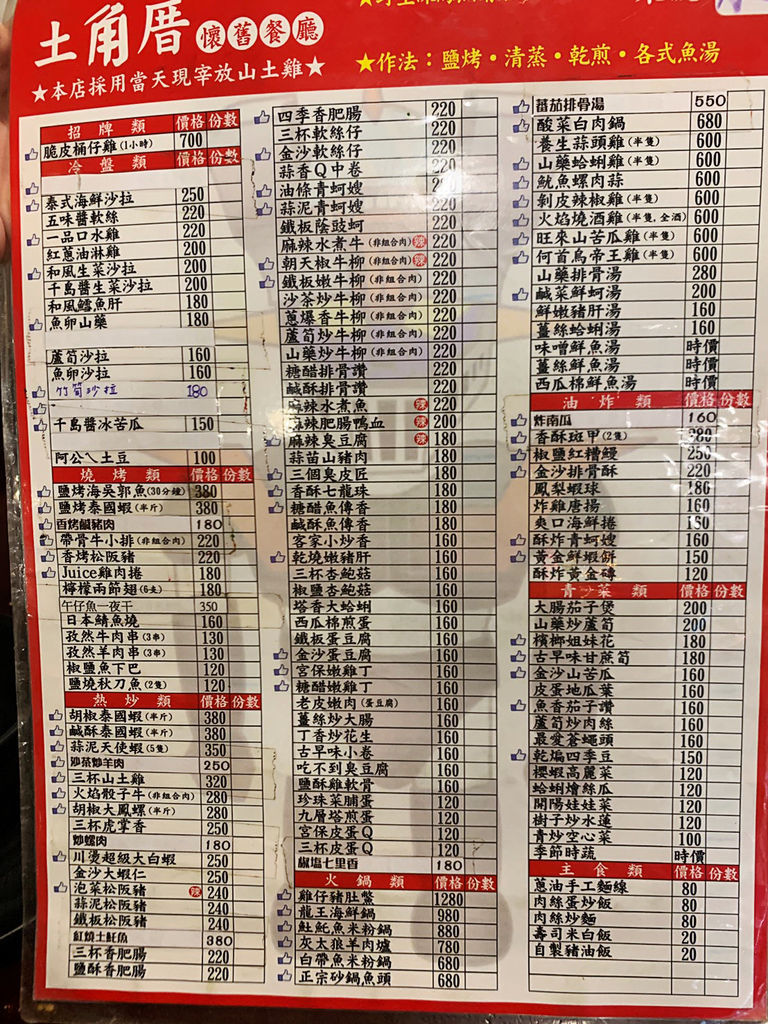 土角厝 懷舊餐廳
★本店採用當天現宰放山土雞★
★作法：鹽烤・清蒸・乾煎・各式魚湯
招牌類 價格 份數
脆皮桶仔雞(1小時) 700
冷盤類 價格 份數
泰式海鮮沙拉 250
五味醬軟絲 220
一品口水雞 220
紅蔥油淋雞 200
和風生菜沙拉 200
千島醬生菜沙拉 200
和風鱈魚肝 180
魚卵山藥 180
蘆筍沙拉 160
魚卵沙拉 160
竹筍沙拉 180
千島醬冰苦瓜 150
阿公ㄟ土豆 100
燒烤類 價格 份數
鹽烤海吳郭魚(30分鐘) 380
鹽烤泰國蝦(半斤) 380
香烤鹹豬肉 180
帶骨牛小排(非組合肉) 220
香烤松阪豬 220
Juice雞肉捲 180
檸檬兩節翅(6支) 180
午仔魚一夜干 350
日本鯖魚燒 160
孜然牛肉串(3串) 130
孜然羊肉串(3串) 130
椒鹽魚下巴 120
鹽燒秋刀魚(2隻) 120
熱炒類 價格 份數
胡椒泰國蝦(半斤) 380
鹹酥泰國蝦(半斤) 380
蒜泥天使蝦(5隻) 350
沙茶炒羊肉 250
三杯山土雞 320
火焰骰子牛(非組合肉) 280
胡椒大鳳螺(半斤) 280
三杯虎掌香 250
炒螺肉 180
川燙超級大白蝦 250
金沙大蝦仁 250
泡菜松阪豬 辣 240
蒜泥松阪豬 240
鐵板松阪豬 240
紅燒土魠魚 380
三杯香肥腸 220
鹽酥香肥腸 220
四季香肥腸 220
三杯軟絲仔 220
金沙軟絲仔 220
蒜香Q中卷 220
油條青蚵嫂
蒜泥青蚵嫂 220
鐵板蔭豉蚵 220
麻辣水煮牛(非組合肉) 辣 220
朝天椒牛柳(非組合肉) 辣 220
鐵板嫩牛柳(非組合肉) 220
沙茶炒牛柳(非組合肉) 220
蔥爆香牛柳(非組合肉) 220
蘆筍炒牛柳(非組合肉) 220
山藥炒牛柳(非組合肉) 220
糖醋排骨讚 220
鹹酥排骨讚 220
麻辣水煮魚 辣 220
麻辣肥腸鴨血 辣 200
麻辣臭豆腐 辣 180
蒜苗山豬肉 180
三個臭皮匠 180
香酥七龍珠 180
糖醋魚傳香 180
鹹酥魚傳香 180
客家小炒香 180
乾燒嫩豬肝 160
三杯杏鮑菇 160
椒鹽杏鮑菇 160
塔香大蛤蜊 160
西瓜棉煎蛋 160
鐵板蛋豆腐 160
金沙蛋豆腐 160
宮保嫩雞丁 160
糖醋嫩雞丁 160
老皮嫩肉(蛋豆腐) 160
薑絲炒大腸 160
丁香炒花生 160
古早味小卷 160
吃不到臭豆腐 160
鹽酥雞軟骨 160
珍珠菜脯蛋 120
九層塔煎蛋 120
宮保皮蛋Q 120
三杯皮蛋Q 120
椒塩七里香 180
火鍋類 價格 份數
雞仔豬肚鱉 1280
龍王海鮮鍋 980
𩵚魠魚米粉鍋 880
灰太狼羊肉爐 780
白帶魚米粉鍋 680
正宗砂鍋魚頭 680
蕃茄排骨湯 550
酸菜白肉鍋 680
養生蒜頭雞(半隻) 600
山藥蛤蜊雞(半隻) 600
魷魚螺肉蒜 600
剝皮辣椒雞(半隻) 600
火焰燒酒雞(半隻,全酒) 600
旺來山苦瓜雞(半隻) 600
何首烏帝王雞(半隻) 600
山藥排骨湯 280
鹹菜鮮蚵湯 200
鮮嫩豬肝湯 160
薑絲蛤蜊湯 160
味噌鮮魚湯 時價
薑絲鮮魚湯 時價
西瓜棉鮮魚湯 時價
油炸類 價格 份數
炸南瓜 160
香酥斑甲(2隻)
椒鹽紅糟鰻 250
金沙排骨酥 220
鳳梨蝦球 180
炸雞唐揚 160
爽口海鮮捲
酥炸青蚵嫂 160
黃金鮮蝦餅 150
酥炸黃金磚 120
青菜類 價格 份數
大腸茄子煲 200
山藥炒蘆筍 200
檳榔姐妹花 180
古早味甘蔗筍 180
金沙山苦瓜 160
皮蛋地瓜葉 160
魚香茄子讚 160
蘆筍炒肉絲 160
最愛蒼蠅頭 160
乾煸四季豆 150
櫻蝦高麗菜 120
蛤蜊燴絲瓜 120
開陽娃娃菜 120
樹子炒水蓮 120
青炒空心菜 100
季節時蔬 時價
主食類 價格 份數
蔥油手工麵線 80
肉絲蛋炒飯 80
肉絲炒麵 80
壽司米白飯 20
自製豬油飯 20